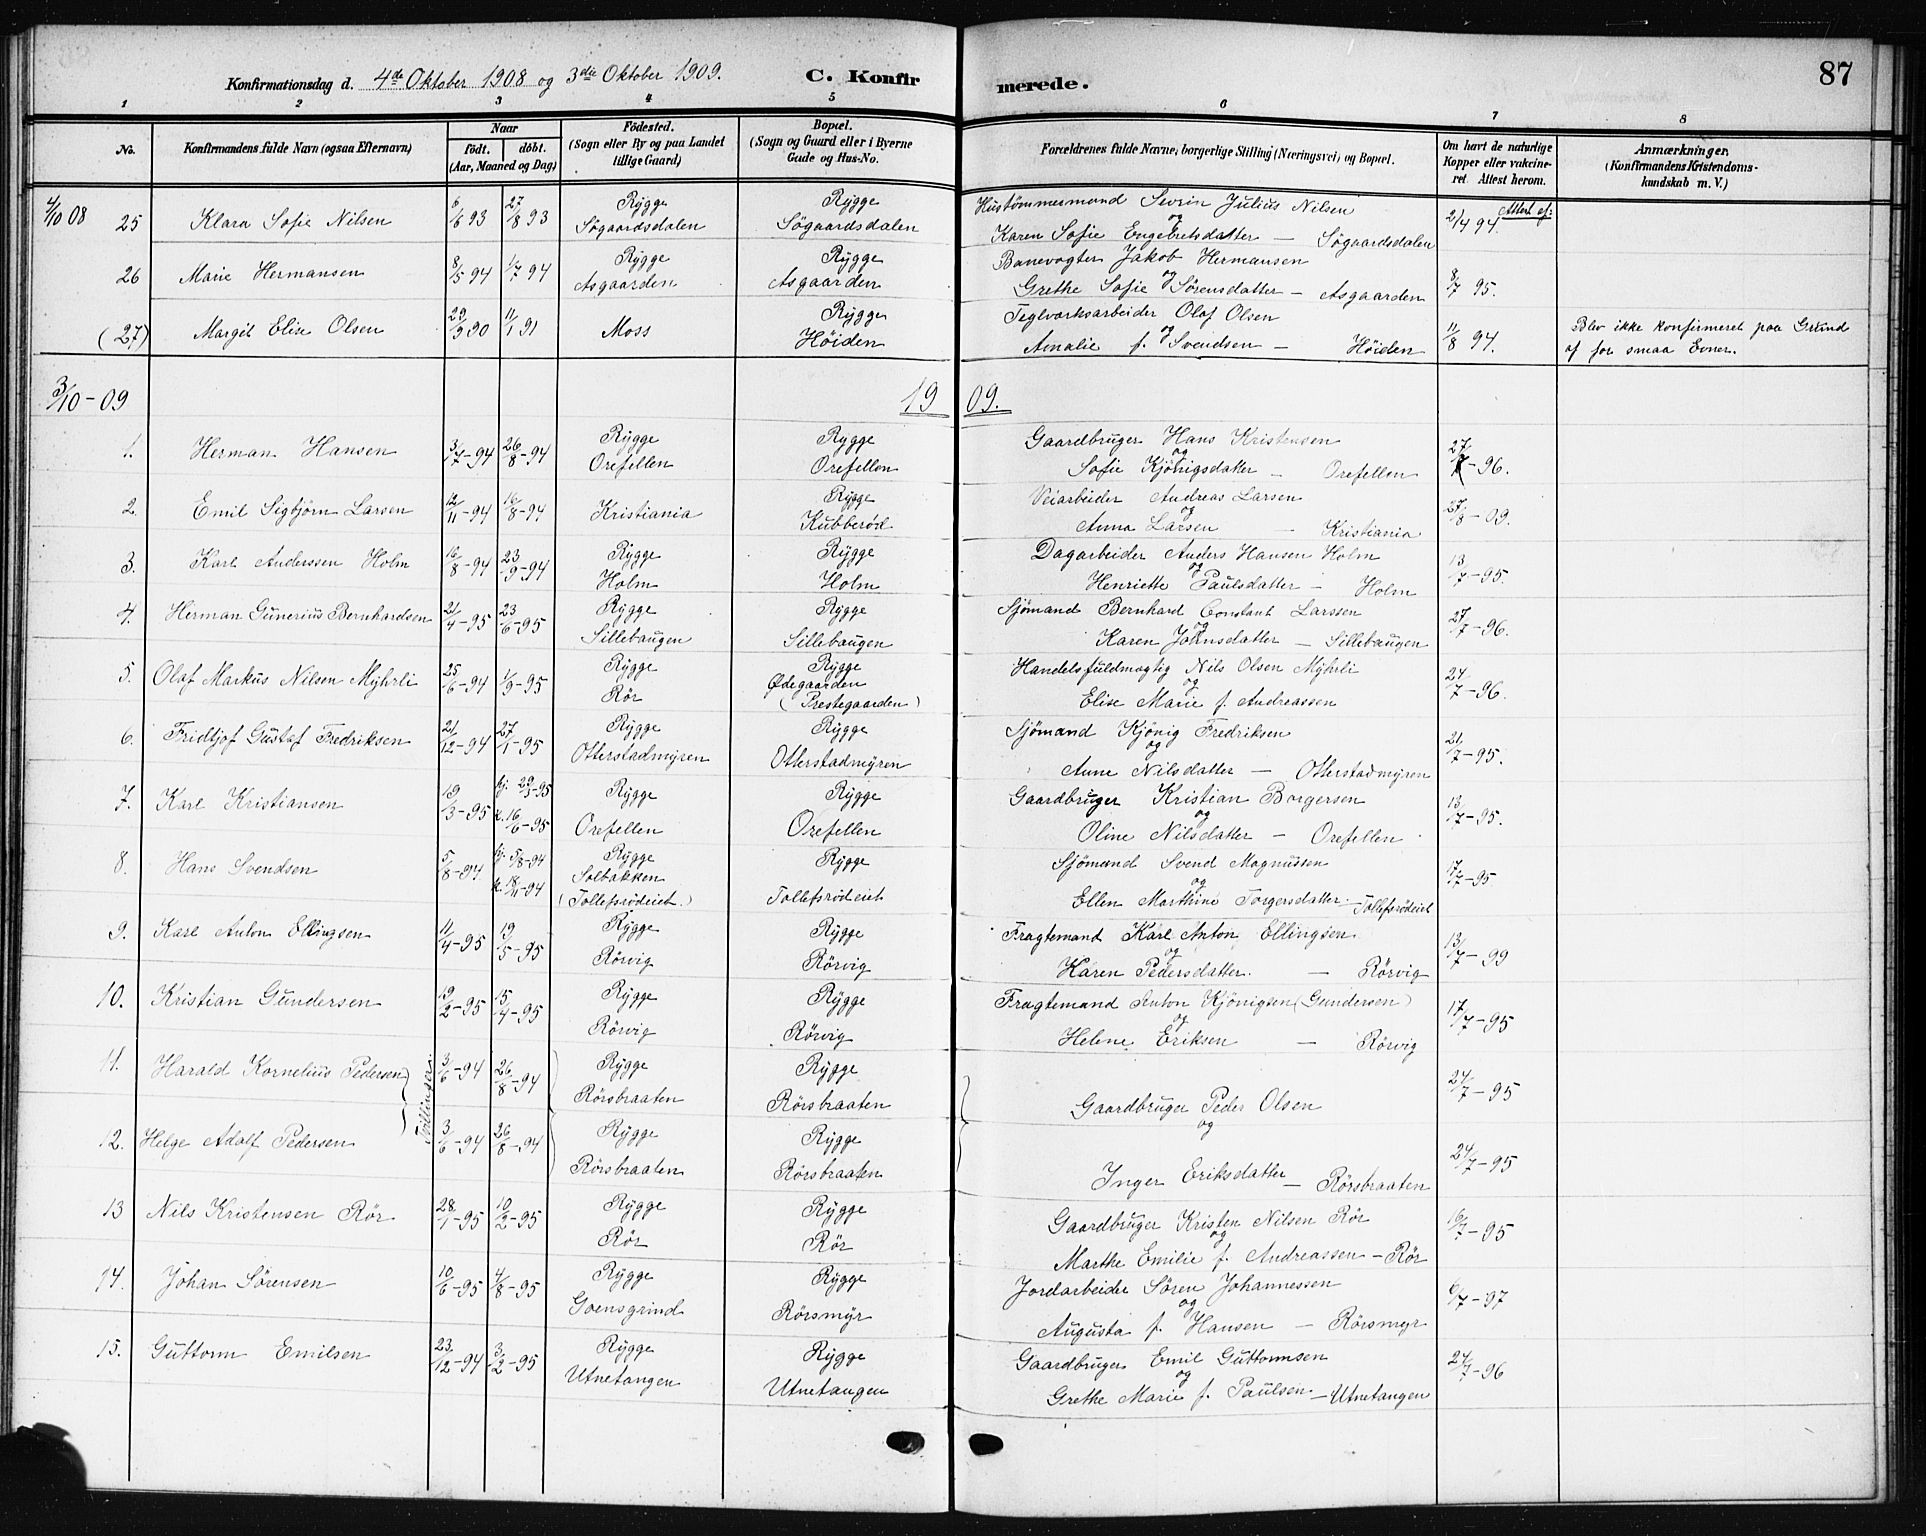 87
Konfirmationsdag d. 4de Oktober 1908 og 3die Oktober 1909. C. Konfirmerede.
1 2 3 4 5 6 7 8
No. Konfirmandens fulde Navn (ogsaa Efternavn) Naar født. døbt. (Aar, Maaned og Dag) Fødested. (Sogn eller By og paa Landet tillige Gaard) Bopæl. (Sogn og Gaard eller i Byerne Gade og Hus-No. Forældrenes fulde Navne, borgerlige Stilling (Næringsvei) og Bopæl. Om havt de naturlige Kopper eller vakcineret. Attest herom. Anmærkninger. (Konfirmandens Kristendomskundskab m. V.)
4/10 08 25 Klara Sofie Nilsen 6/6 93 27/8 93 Rygge Søgaardsdalen Rygge Søgaardsdalen Hustømmermand Sevrin Julius Nilsen og Karen Sofie Engebretsdatter — Søgaardsdalen Attest af: 2/4 94
26 Marie Hermansen 8/5 94 1/7 94 Rygge Asgaarden Rygge Asgaarden Banevogter Jakob Hermansen og Grethe Sofie Sørensdatter — Asgaarden 8/7 95.
(27) Margit Elise Olsen 29/9 90 11/1 91 Moss Rygge Høiden Teglværksarbeider Olaf Olsen og Amalie f. Svendsen — Høiden 11/8 94. Blev ikke konfirmeret paa Grund af for smaa Evner.
3/10 - 09 1909.
1. Herman Hansen 3/7-94 26/8-94 Rygge Orefellen Rygge Orefellen Gaardbruger Hans Kristensen og Sofie Kjønigsdatter — Orefellen 27/7-96.
2. Emil Sigbjørn Larsen 12/11-94 16/8-94 Kristiania Rygge Kubberød. Veiarbeider Andreas Larsen og Anna Larsen — Kristiania 27/8-09.
3. Karl Anderssen Holm 16/8-94 23/9-94 Rygge Holm Rygge Holm Dagarbeider Anders Hansen Holm og Henriette Paulsdatter — Holm 13/7-95.
4. Herman Gunerius Bernhardsen 21/4-95 23/6-95 Rygge Sillebaugen Rygge Sillebaugen Sjømand Bernhard Constant Larssen og Karen Johnsdatter — Sillebaugen 27/7-96.
5. Olaf Markus Nilsen Myhrli 25/6-94 1/9-95 Rygge Rør Rygge Ødegaarden (Prestegaarden) Handelsfuldmægtig Nils Olsen Myhrli og Elise Marie f. Andreassen 24/7-96.
6. Fridtjof Gustaf Fredriksen 21/12-94 27/1-95 Rygge Otterstadmyren Rygge Otterstadmyren Sjømand Kjønig Fredriksen og Anne Nilsdatter — Otterstadmyren 21/7-95.
7. Karl Kristiansen 19/3-95 hj. 29/3-95 k. 16/6-95 Rygge Orefellen Rygge Orefellen Gaardbruger Kristian Borgersen og Oline Nilsdatter — Orefellen 13/7-95.
8. Hans Svendsen 5/8-94 hj. 5/8-94 k. 18/11-94 Rygge Solbakken (Tollefsrødeiet.) Rygge Tollefsrødeiet Sjømand Svend Magnussen og Ellen Marthine Torgersdatter — Tollefsrødeiet 17/7-95
9. Karl Anton Ellingsen 11/4-95 19/5-95 Rygge Rørvig Rygge Rørvig Fragtemand Karl Anton Ellingsen og Karen Pedersdatter. — Rørvig 13/7-99
10. Kristian Gundersen 19/2-95 15/4-95 Rygge Rørvig Rygge Rørvig Fragtemand Anton Kjønigsen (Gundersen) og Helene Eriksen — Rørvig 17/7-95
11. Harald Kornelius Pedersen 3/6-94 26/8-94 Rygge Rørsbraaten Rygge Rørsbraaten Gaardbruger Peder Olsen og 24/7-95
Tvillinger
12. Helge Adolf Pedersen 3/6-94 26/8-94 Rygge Rørsbraaten Rygge Rørsbraaten Inger Eriksdatter — Rørsbraaten 24/7-95
13 Nils Kristensen Rør 28/1-95 10/2-95 Rygge Rør Rygge Rør Gaardbruger Kristen Nilsen Rør og Marthe Emilie f. Andreassen — Rør 16/7-95
14. Johan Sørensen 10/6-95 4/8-95 Rygge Goensgrind Rygge Rørsmyr Jordarbeider Søren Johannessen og Augusta f. Hansen — Rørsmyr 6/7-97
15. Guttorm Emilsen 23/12-94 3/2-95 Rygge Utnetangen Rygge Utnetangen Gaardbruger Emil Guttormsen og Grethe Marie f. Paulsen — Utnetangen 24/7-96